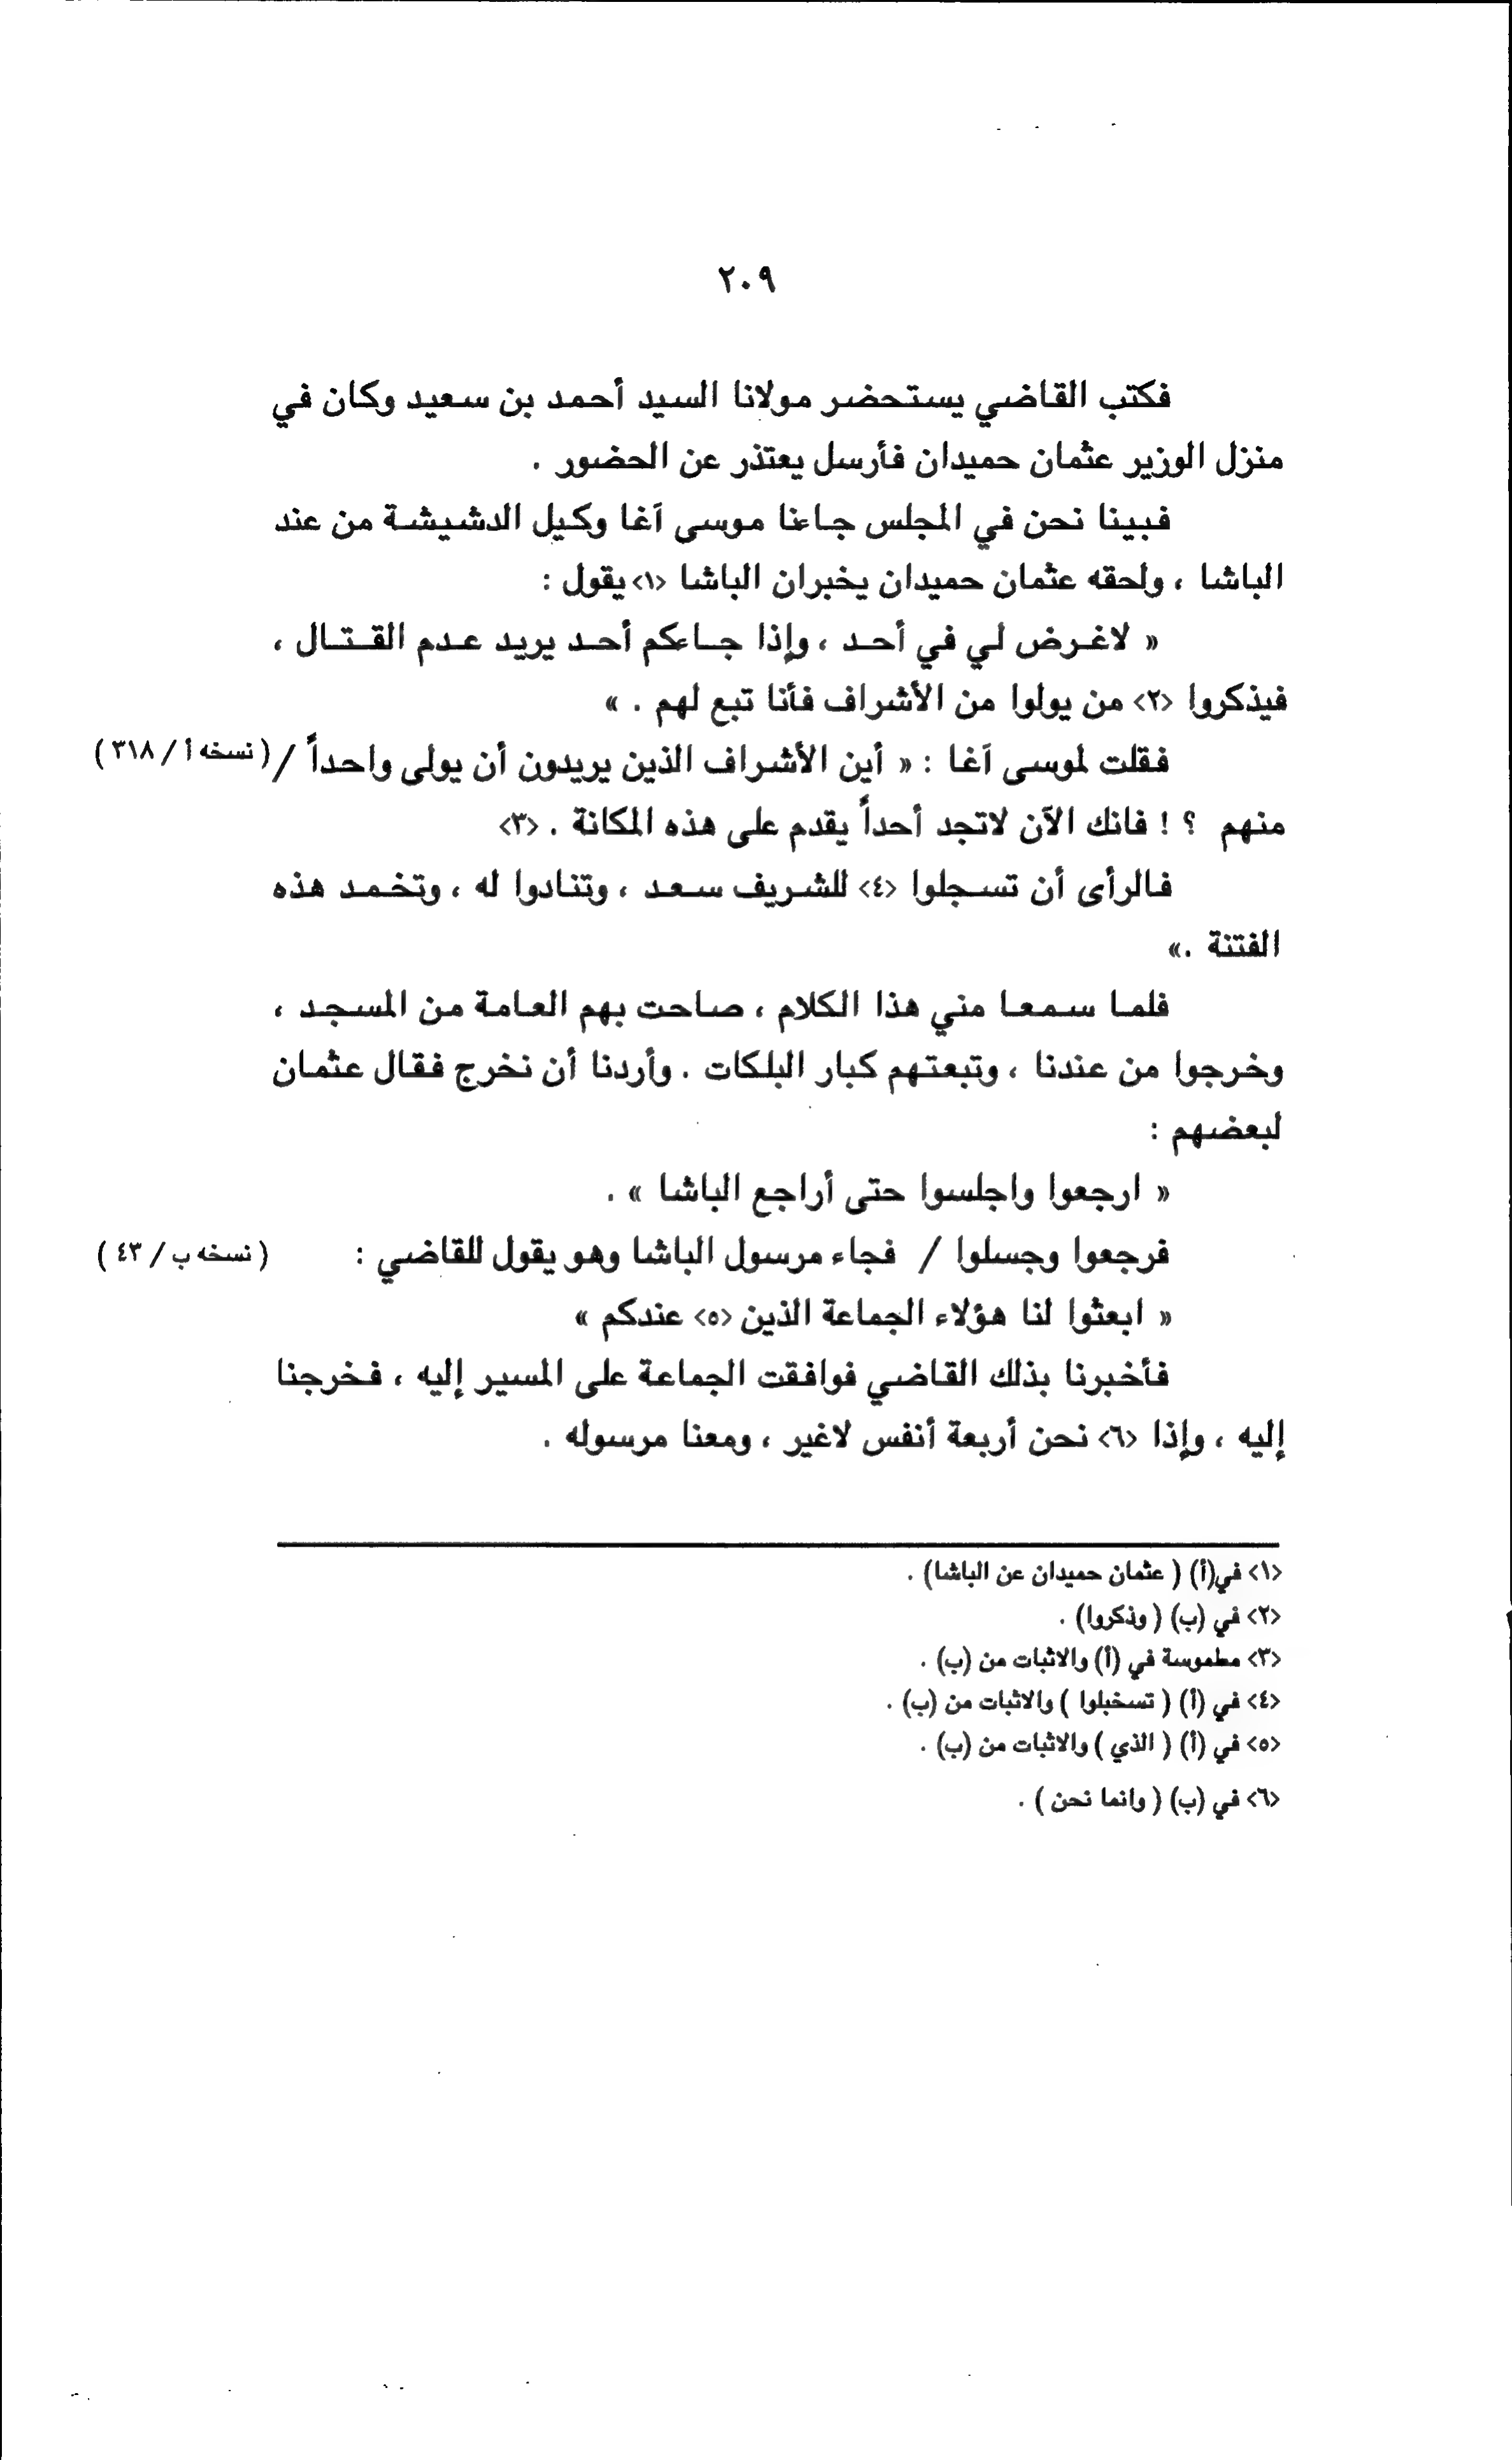 ٢٠٩
فكتب القاضي يستحضر مولانا السيد أحمد بن سعيد وكان في
منزل الوزير عثمان حميدان فأرسل يعتذر عن الحضور .
فبينا نحن في المجلس جاءنا موسى آغا وكيل الدشيشة من عند
الباشا ، ولحقه عثمان حميدان يخبران الباشا <١> يقول :
« لاغرض لي في أحد ، وإذا جاءكم أحد يريد عدم القتال ،
فيذكروا <٢> من يولوا من الأشراف فأنا تبع لهم . »
فقلت لموسى آغا : « أين الأشراف الذين يريدون أن يولى واحداً / ( نسخه أ / ٣١٨ )
منهم ؟ ! فانك الآن لاتجد أحداً يقدم على هذه المكانة . <٣>
فالرأى أن تسجلوا <٤> للشريف سعد ، وتنادوا له ، وتخمد هذه
الفتنة .»
فلما سمعا مني هذا الكلام ، صاحت بهم العامة من المسجد ،
وخرجوا من عندنا ، وتبعتهم كبار البلكات . وأردنا أن نخرج فقال عثمان
لبعضهم :
« ارجعوا واجلسوا حتى أراجع الباشا » .
فرجعوا وجسلوا / فجاء مرسول الباشا وهو يقول للقاضي : ( نسخه ب / ٤٣ )
« ابعثوا لنا هؤلاء الجماعة الذين <٥> عندكم »
فأخبرنا بذلك القاضي فوافقت الجماعة على المسير إليه ، فخرجنا
إليه ، وإذا <٦> نحن أربعة أنفس لاغير ، ومعنا مرسوله .
<١> في(أ) ( عثمان حميدان عن الباشا) .
<٢> في (ب) ( وذكروا) .
<٣> مطموسة في (أ) والاثبات من (ب) .
<٤> في (أ) ( تسخبلوا ) والاثبات من (ب) .
<٥> في (أ) ( الذي ) والاثبات من (ب) .
<٦> في (ب) ( وانما نحن ) .